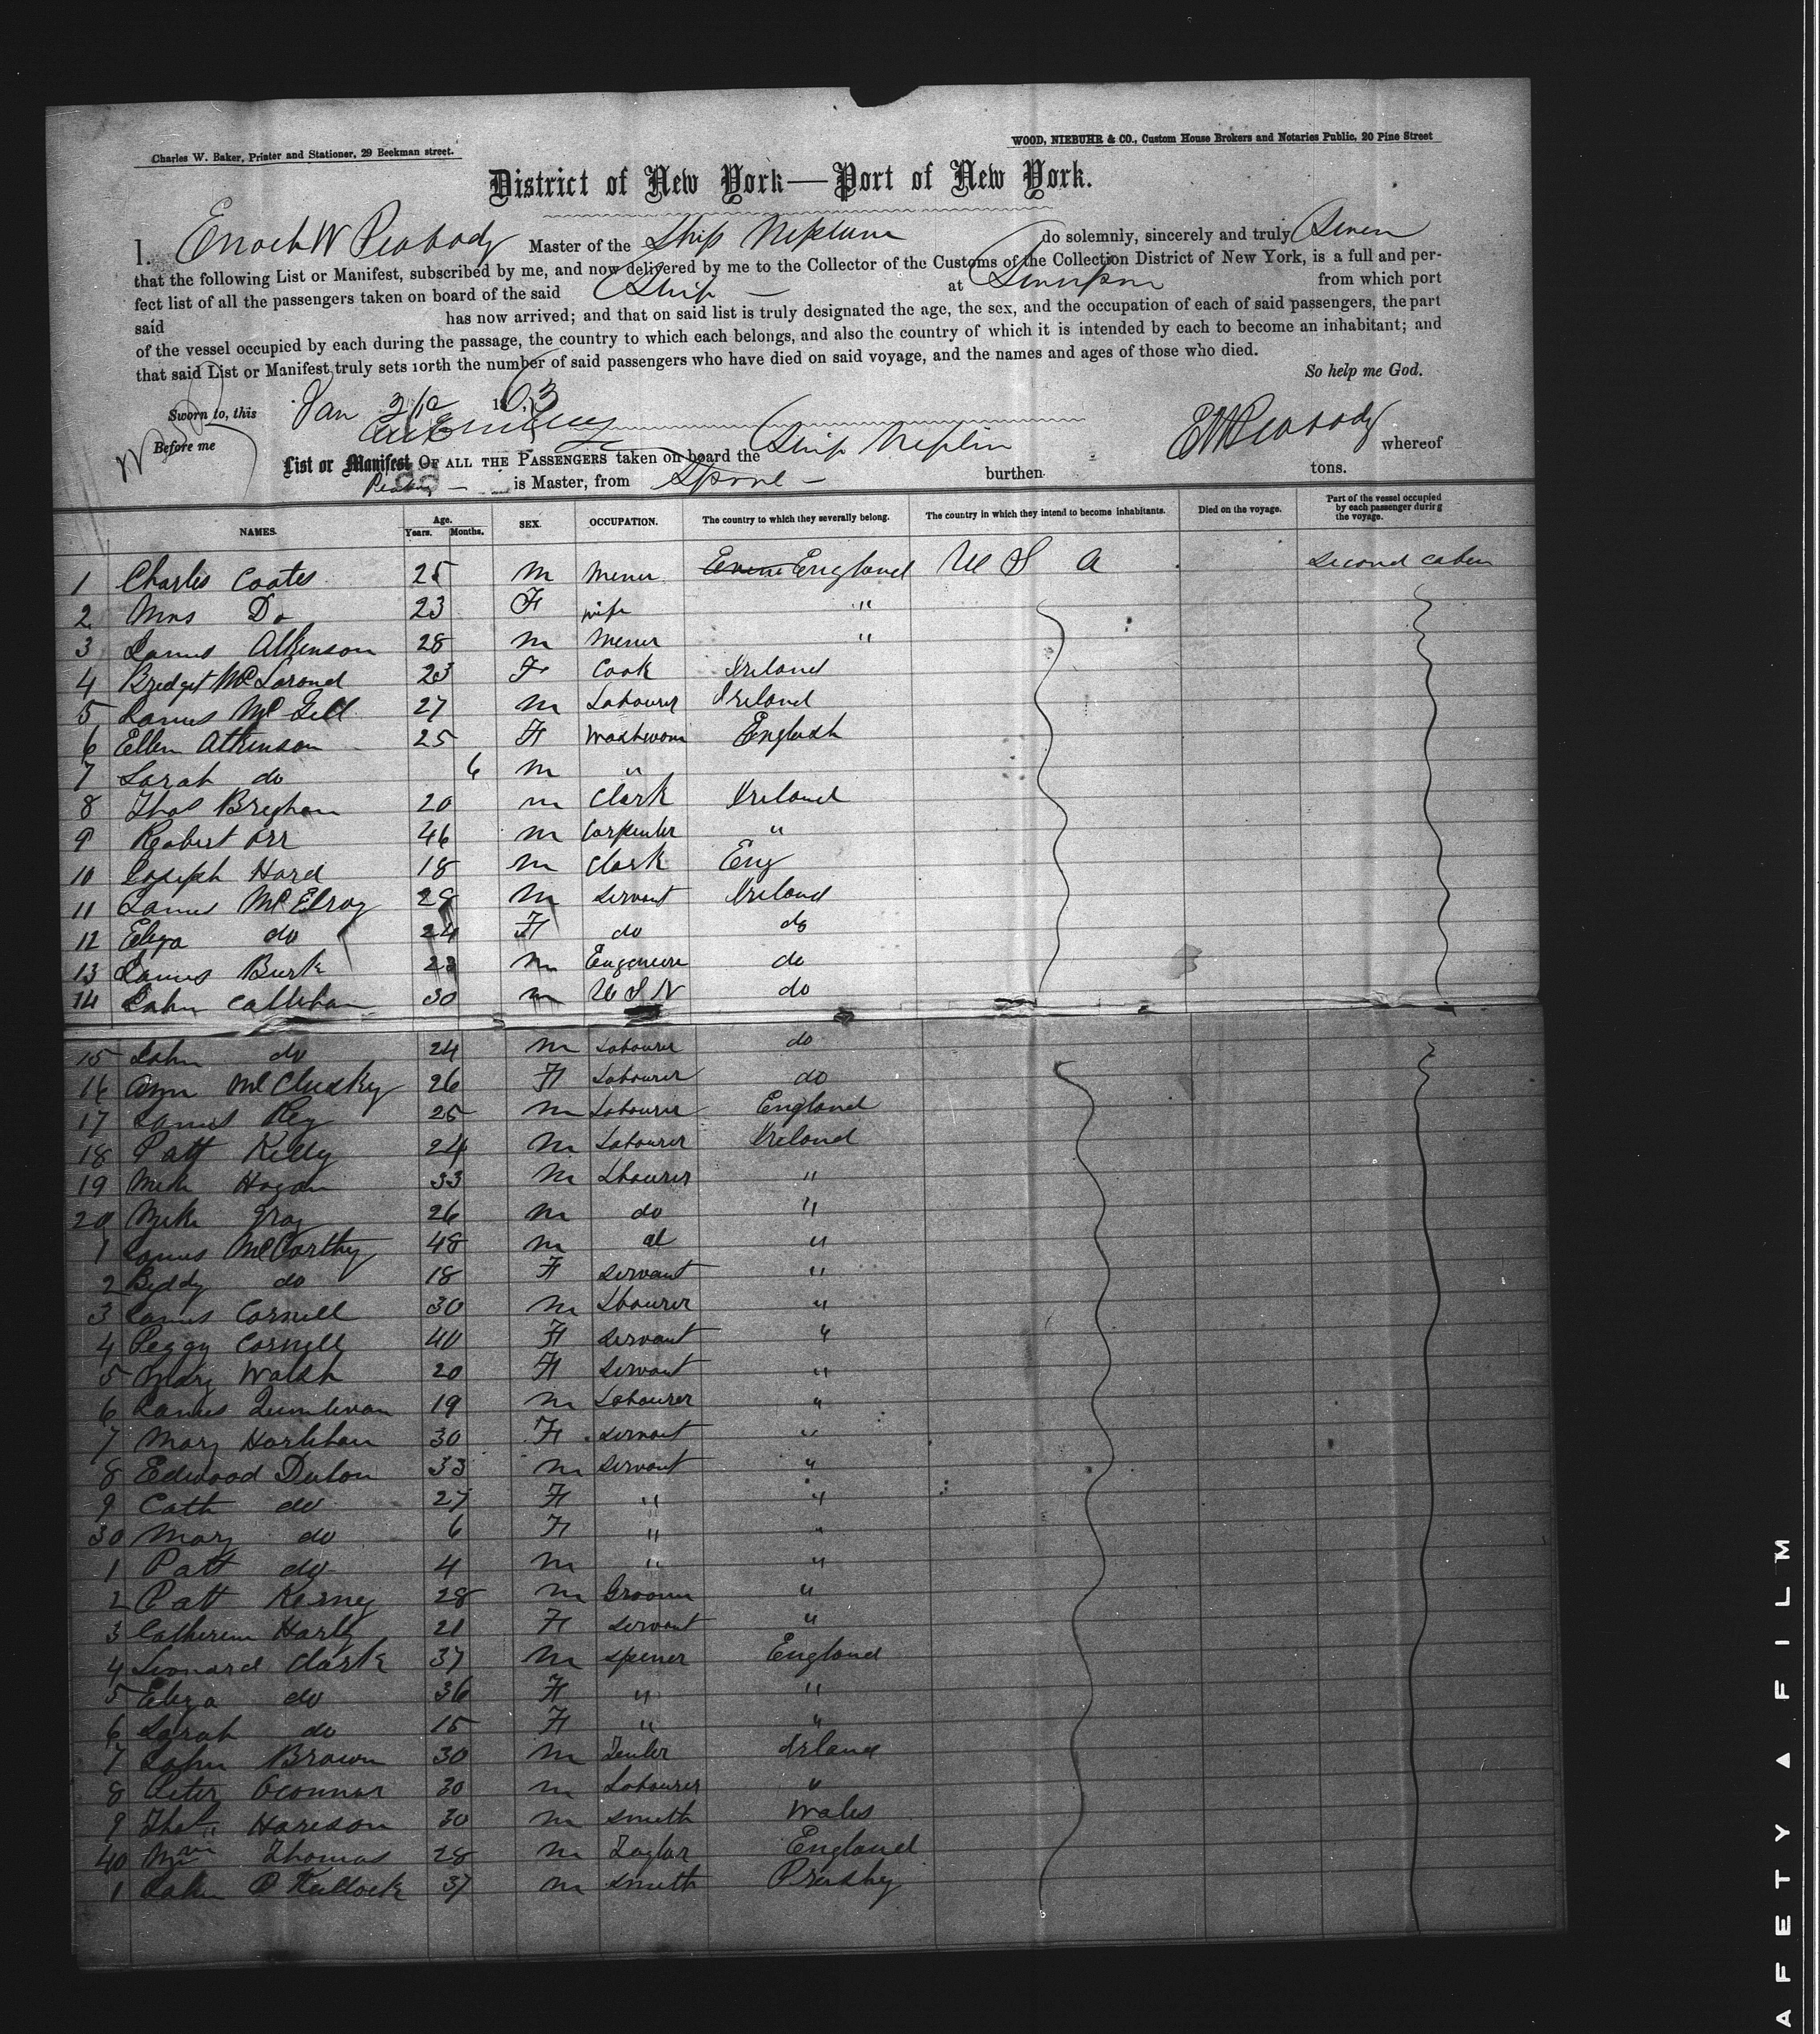 Charles W. Baker, Printer and Stationer, 29 Beekman street.
WOOD, NIEBUHR & CO., Custom House Brokers and Notaries Public, 20 Pine Street
District of New York—Port of New York.
I. Enoch W Peabody Master of the Ship Neptune do solemnly, sincerely and truly
that the following List or Manifest, subscribed by me, and now delivered by me to the Collector of the Customs of the Collection District of New York, is a full and per-
fect list of all the passengers taken on board of the said Ship — at from which port
said has now arrived; and that on said list is truly designated the age, the sex, and the occupation of each of said passengers, the part
of the vessel occupied by each during the passage, the country to which each belongs, and also the country of which it is intended by each to become an inhabitant; and
that said List or Manifest truly sets forth the number of said passengers who have died on said voyage, and the names and ages of those who died.
So help me God.
Sworn to, this Jan 1863
Before me
E W Peabody
List or Manifest OF ALL THE PASSENGERS taken on board the Ship Neptun whereof
Peabody — is Master, from burthen tons.
NAMES. Age. Years. Months. SEX. OCCUPATION. The country to which they severally belong. The country in which they intend to become inhabitants. Died on the voyage. Part of the vessel occupied by each passenger during the voyage.
1 Charles Coates 25 M Mener England U S A Second Caben
2 Mrs Do 23 F wife "
3 James Atkenson 28 M Mener "
4 Bredget 23 F Cook Ireland
5 James Mc Gell 27 M Labourer Ireland
6 Ellen Atkenson 25 F Englesh
7 Sarah do 6 M "
8 Thos Breghan 20 M Clark Ireland
9 Robert Orr 46 M Carpenter "
10 Joseph Hard 18 M Clark Eng
11 James McElroy 28 M Servant Ireland
12 Eliza do 24 F do do
13 James Burk 23 M do
14 John Callehan 30 M U S N do
15 John do 24 M Labourer do
16 Ann McClusky 26 F Labourer do
17 James Rey 25 M Labourer England
18 Patt Kelly 24 M Labourer Ireland
19 Mich Hogan 33 M Lbourer "
20 Mike Gray 26 M do "
1 James McCarthy 48 M "
2 Beddy do 18 F Servant "
3 James Cornell 30 M Lbourer "
4 Peggy Cornell 40 F Servant "
5 Mary Walsh 20 F Servant "
6 James Quinlevan 19 M Labourer "
7 Mary Horlehan 30 F Servant "
8 Edward 33 M Servant "
9 Cath do 27 F " "
30 Mary do 6 F " "
1 Patt do 4 M " "
2 Patt Kerney 28 M Groom "
3 Catherine Harly 21 F Servant "
4 Leonard Clark 37 M Spener England
5 Eliza do 36 F " "
6 Sarah do 15 F " "
7 John Brown 30 M Irland
8 Peter Oconner 30 M Labourer "
9 Thos Hareson 30 M Smeth Wales
40 Wm Thomas 28 M Taylor England
1 John 37 M Smeth
SAFETY ▲ FILM